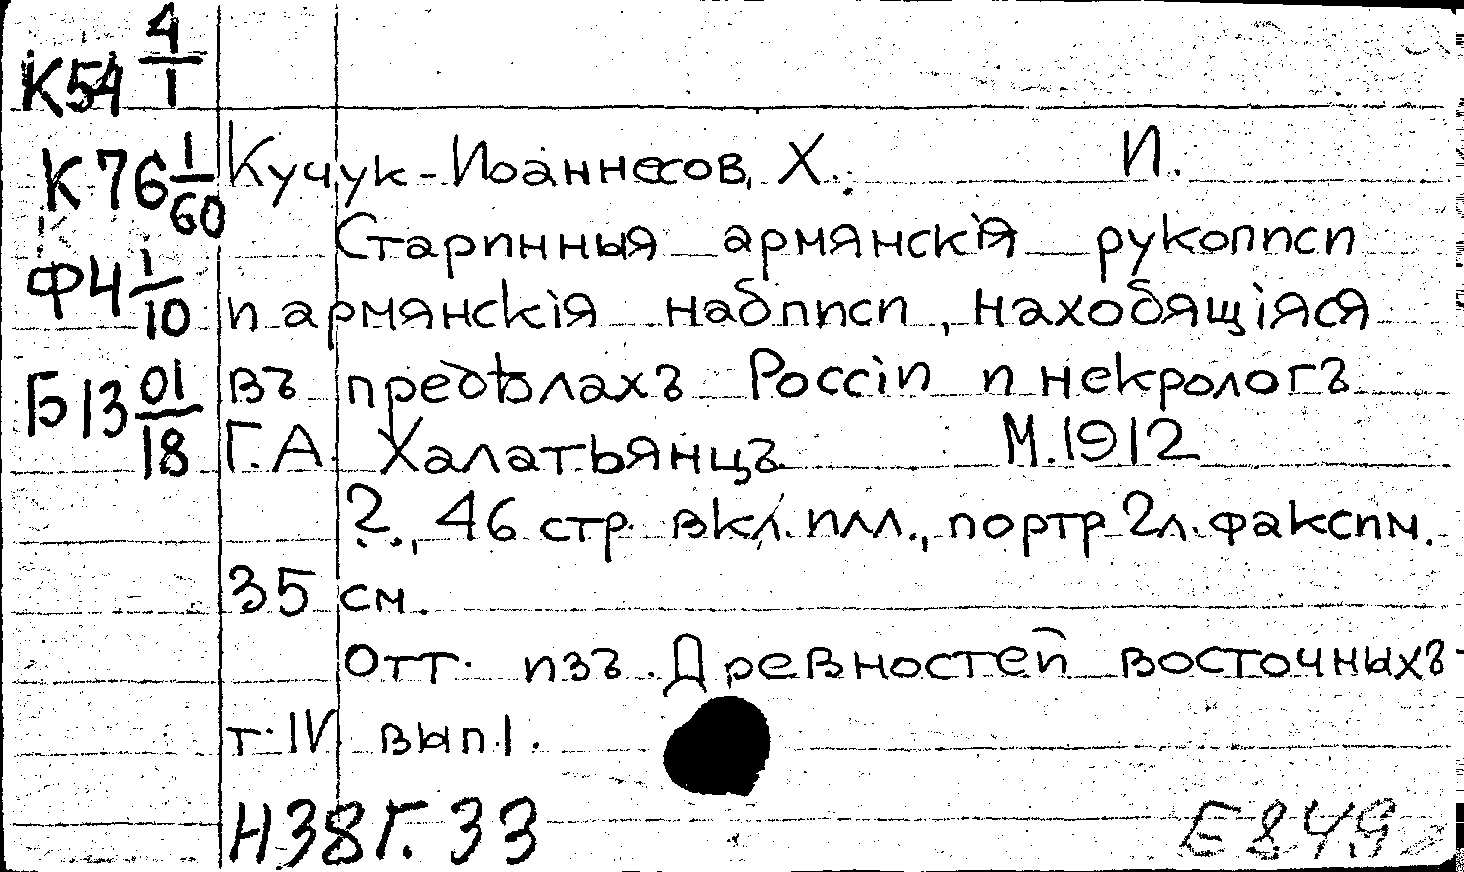 К54 4/1
К76 1/60 Кучук-Иоаннесов, Х. И.
Старинныя армянскія рукописи
Ф4 1/10 и армянскія надписи, находящіяся
Б13 01/18 въ предѣлахъ Россіи и некрологъ
Г.А. Халатьянцъ М.1912
2., 46 стр. вкл. илл., портр 2л. факсим.
35 см.
Отт. изъ. Древностей восточныхъ
т. IV вып. 1.
Н38Г. 33